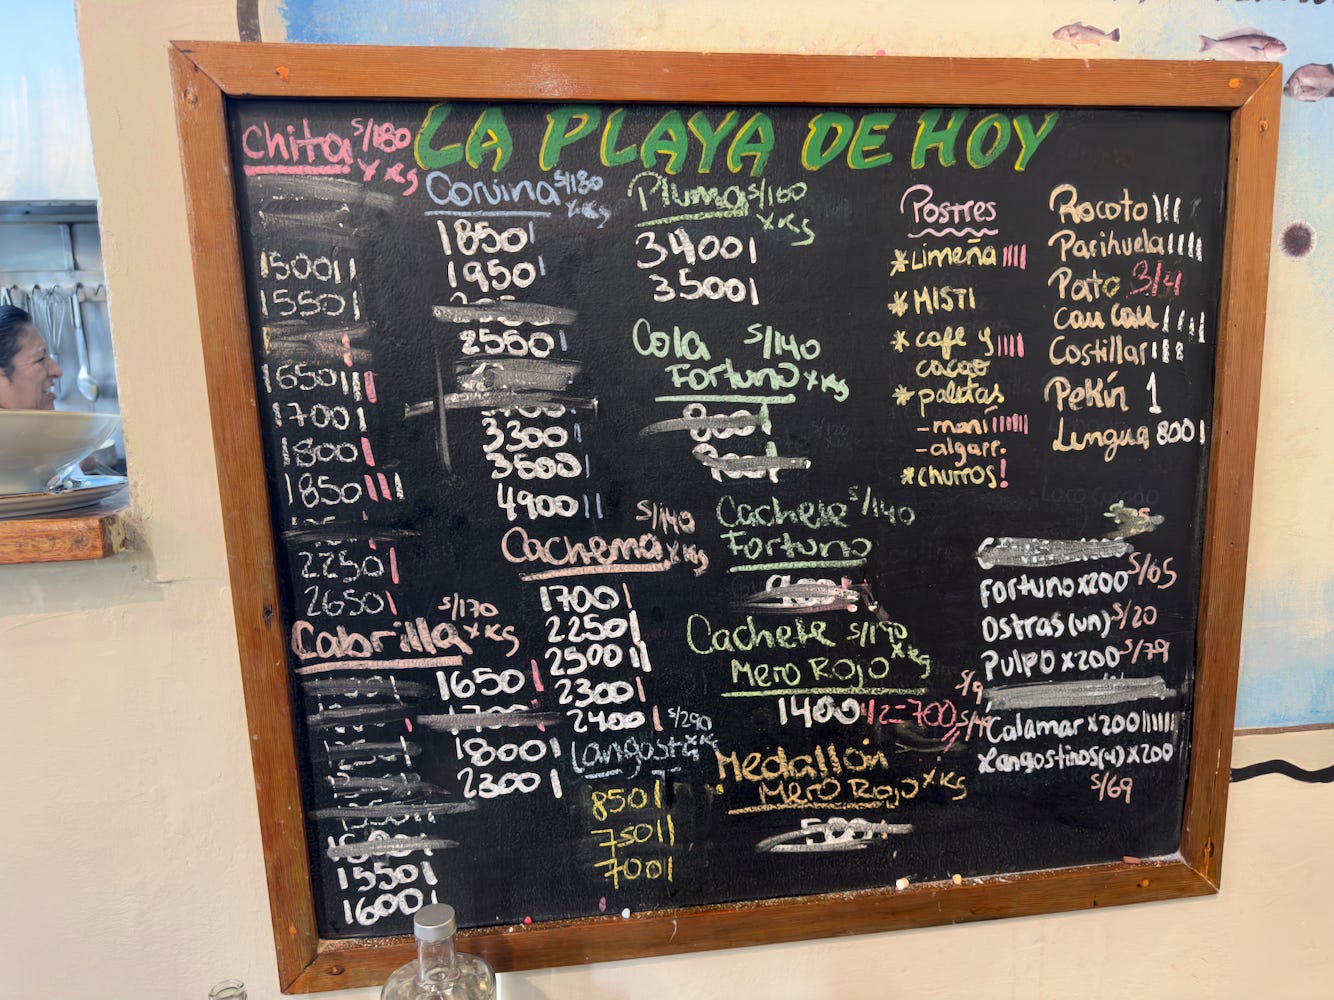 LA PLAYA DE HOY
Chita S/180
x Kg
1500 II
1550 I
1650 IIII
1700 I
1800 I
1850 IIII
2250 I
2650 I
Cabrilla S/170
x Kg
1550 I
1600 I
1650 I
1800 I
2300 I
Corvina S/180
x Kg
1850 I
1950 I
2550 I
3300 I
3500 I
4900 II
Cachema S/140
x Kg
1700 I
2250 I
2500 II
2300 I
2400 I
Langosta S/290
x K
850 I
750 II
700 I
Pluma S/160
x Kg
3400 I
3500 I
Cola S/140
Fortuno x Kg
800 I
Cachete S/140
Fortuno
900 I
Cachete S/190
x Kg
Mero Rojo
1400 1/2=700
Medallón
Mero Rojo x Kg
500 I
Postres
*Limeña IIII
*MISTI
*cafe y IIII
cacao
*paletas
-maní IIIIII
-algarr.
*churros!
Rocoto III
Parihuela IIII
Pato 3/4
Cau Cau IIII
Costillar III
Pekín 1
Lengua 800 I
Fortuno x200 S/65
Ostras (un) S/20
Pulpo x200 S/79
S/9
S/49 Calamar x200 IIIIII
Langostinos(4) x 200
S/69